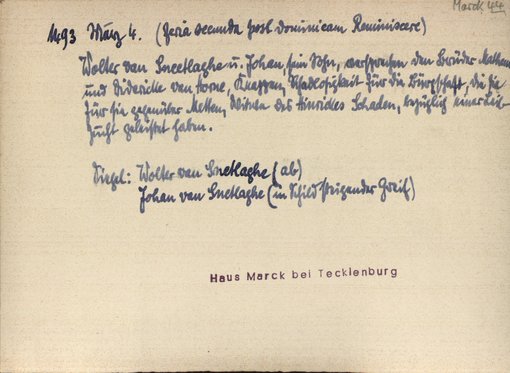 Marck 44
1493 März 4. (feria secunda post dominicam Reminiscere)
Wolter van Sneetlaghe u. Johan, sein Sohn, versprechen den Brüder
und Diderike van Horne, Knappen, Schadlosigkeit für die Bürgschaft, die sie
für sie gegenüber Metten, Witwe des Hinrickes Schaden, bezüglich einer Leib-
zucht geleistet haben.
Siegel: Wolter van Snetlaghe (ab)
Johan van Snetlaghe (in Schild steigender Greif)
Haus Marck bei Tecklenburg